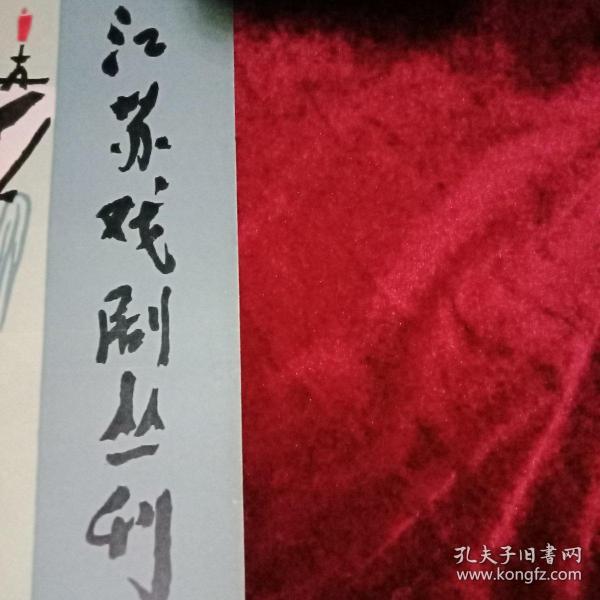 江苏戏剧丛刊
孔夫子旧書网
www.kongfz.com